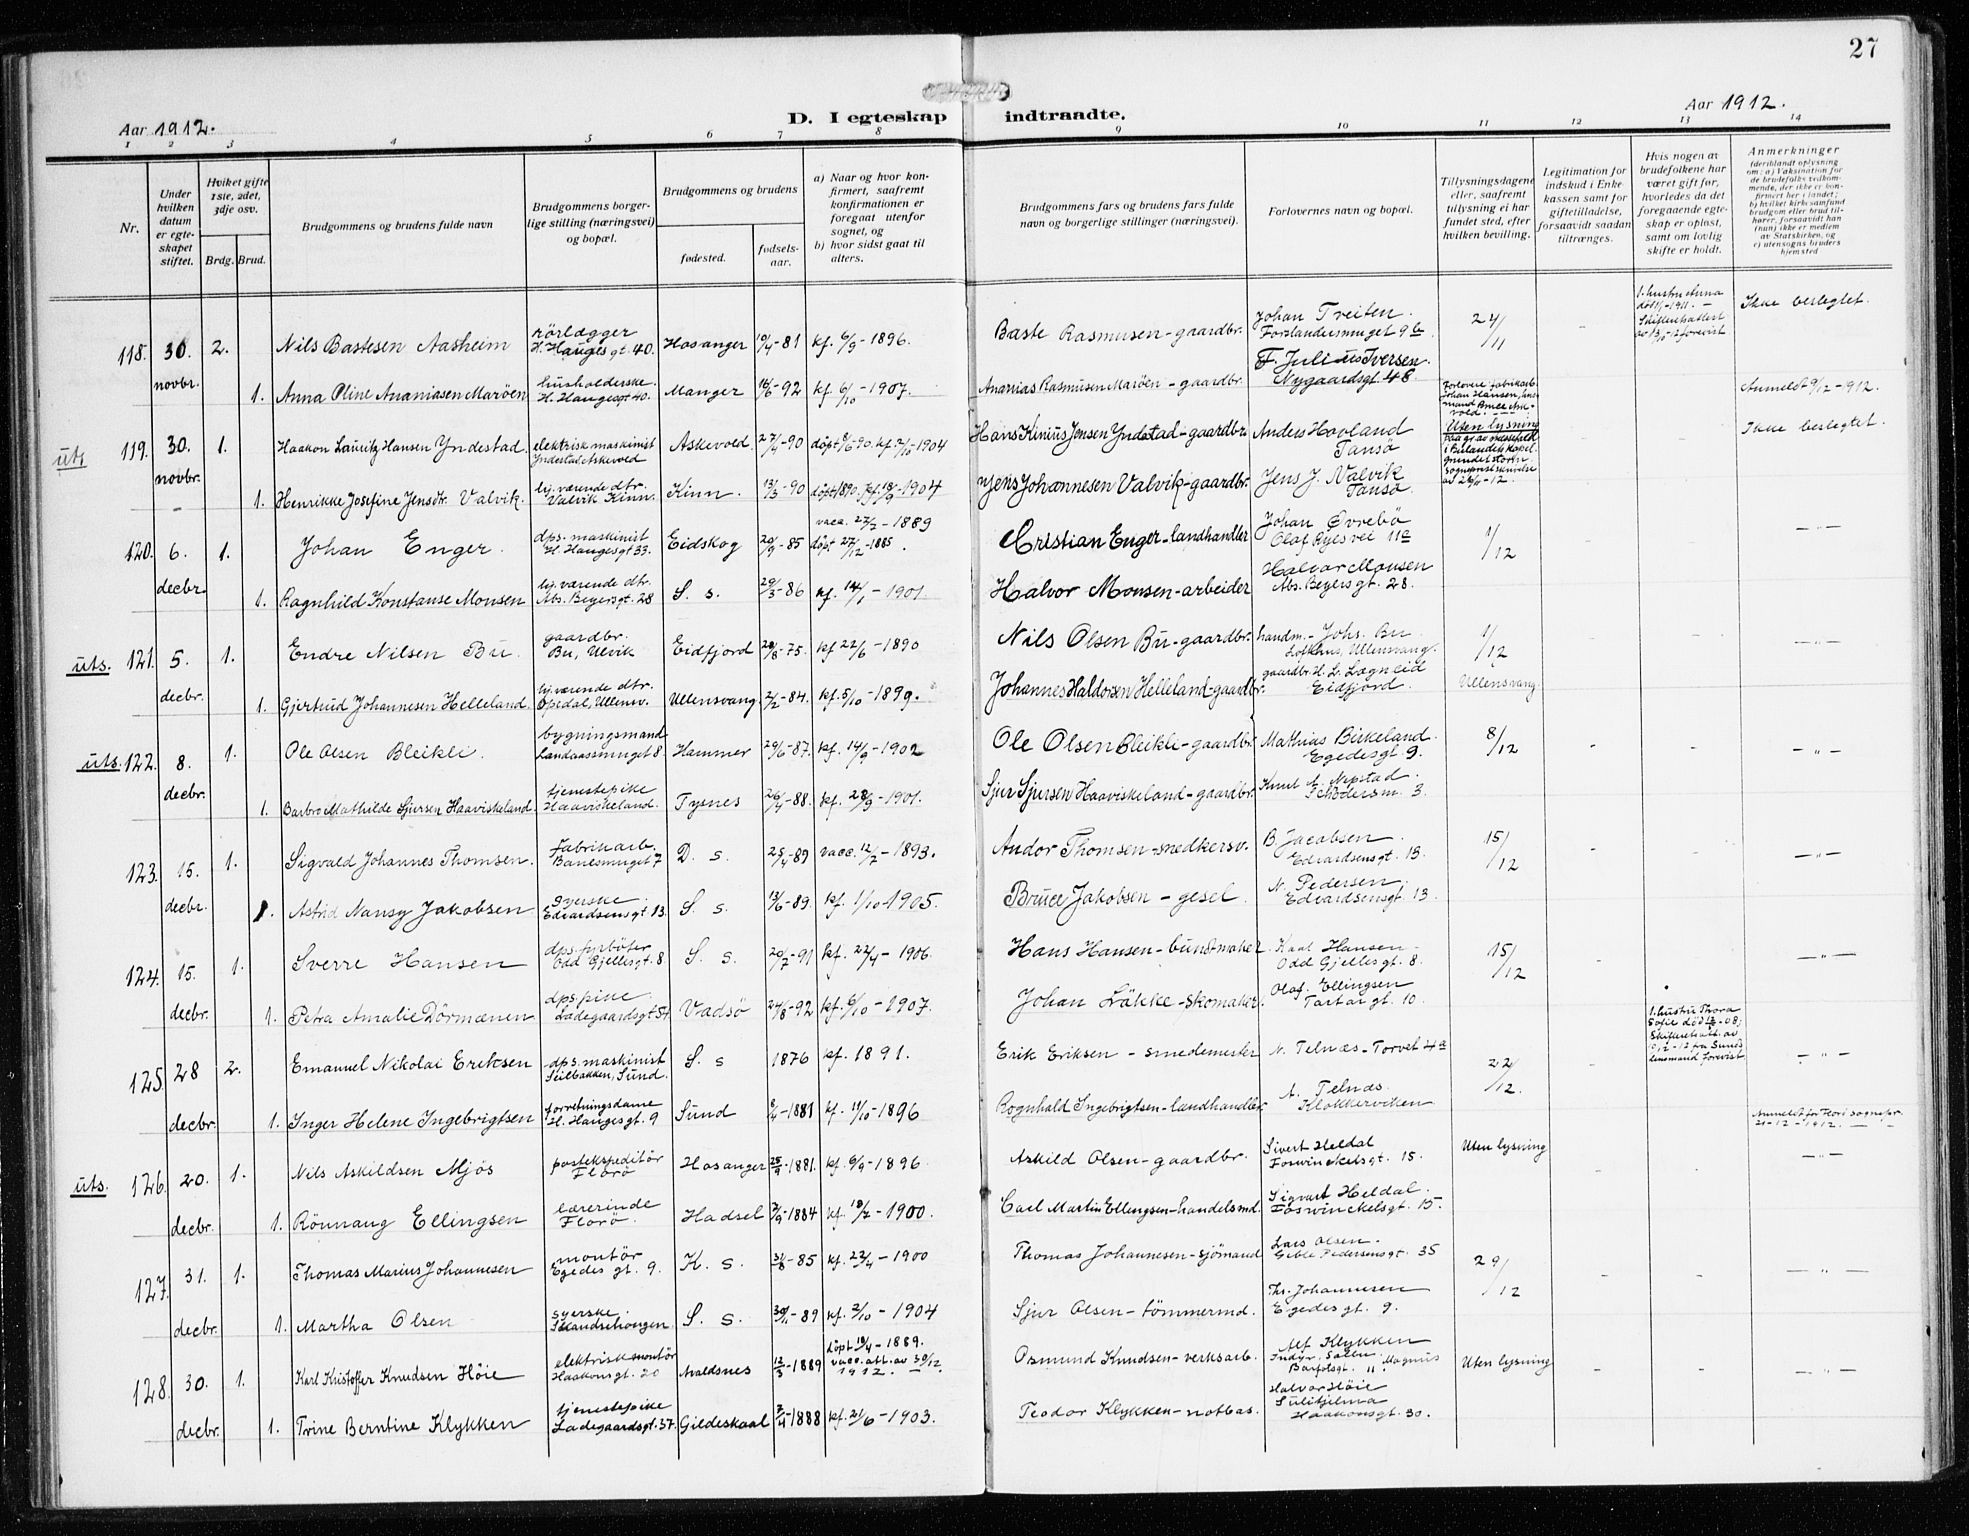 27
Aar 1912.
D. I egteskap indtraadte.
Aar 1912.
1 2 3 4 5 6 7 8 9 10 11 12 13 14
Nr.
Under hvilken datum er egteskapet stiftet.
Hviket gifte 1ste, 2det, 3dje osv.
Brdg. Brud.
Brudgommens og brudens fulde navn
Brudgommens borgerlige stilling (næringsvei) og bopæl.
Brudgommens og brudens
fødested.
fødselsaar.
a) Naar og hvor konfirmert, saafremt konfirmationen er foregaat utenfor sognet, og
b) hvor sidst gaat til alters.
Brudgommens fars og brudens fars fulde navn og borgerlige stillinger (næringsvei).
Forlovernes navn og bopæl.
Tillysningsdagene eller, saafremt tillysning ei har fundet sted, efter hvilken bevilling.
Legitimation for indskud i Enkekassen samt for giftetilladelse, forsaavidt saadan tiltrænges.
Hvis nogen av brudefolkene har været gift før, hvorledes da det foregaaende egteskap er opløst, samt om lovlig skifte er holdt.
Anmerkninger
(deriblandt oplysning om: a) Vaksination for de brudefolks vedkommende, der ikke er konfirmert her i landet; b) hvilket kirkesamfund brudgom eller brud tilhører, forsaavidt han (hun) ikke er medlem av Statskirken, og c) utensogns bruders hjemsted
118. 30. novbr. 2. Nils Bastesen Aasheim rörlægger H. Hauges gt. 40. Hosanger 19/4-81 kf. 6/9-1896. Baste Rasmusen-gaardbr. Johan Treiten. Forstandersmuget 9a 24/11 - 1. hustru Anna Ikke beslegtet.
1. Anna Oline Ananiasen Maröen husholderske. H. Haugesgt 40. Manger 16/6-92 kf. 6/10-1907. Ananias Rasmusen Maröen-gaardbr. F. Julius Iversen. Nygaardsgt. 48. Anmeldt 9/12-1912.
uts 119. 30. novbr. 1. Haakon Lauritz Hansen Yndestad elektrisk maskinist Yndestad, Askevold Askevold. 27/4-90 döpt 8/6 90. kf. 2/10-1904 Hans Kinius Jensen Yndstad-gaardbr. Anders Hovland Tansö Uten lysning Ikke beslegtet.
1. Henrikke Josefine Jensdtr. Valvik. hj. værende dtr. Valvik Kinn. Kinn. 13/3-90 Jens Johannesen Valvik-gaardbr. Jens J. Valvik Tansö.
120. 6. decbr. 1. Johan Enger. dps. maskinist H. Haugesgt 33. Eidskog 20/9-85 vacc. 27/7-1889 döpt 27/12-1885. Cristian Enger-landhandler Johan Øvrebö Olaf Ryesvei 11a 1/12 - - -"-
1. Ragnhild Konstanse Monsen hj. værende dtr. Abs. Beyersgt. 28 S. s. 29/3-86 kf. 14/1-1901. Halvor Monsen-arbeider Halvor Monsen Abs. Beyersgt. 28.
uts. 121. 5. decbr. 1. Endre Nilsen Bu gaardbr. Bu, Ulvik Eidfjord 28/8-75. kf 22/6-1890 Nils Olsen Bu-gaardbr. handm. Johs. Bu Lofthus, Ullensvang. 1/12 - - -"-
1. Gjertrud Johannesen Helleland. hj. værende dtr. Opedal, Ullensv. Ullensvang 2/2-84. kf. 5/10-1899. Johannes Haldorsen Helleland-gaardbr. gaardbr. H. L. Lægreid Eidfjord. Ullensvang.
uts. 122. 8. decbr. 1. Ole Olsen Bleikli. bygningsmand Landaasmuget 8 Hammer 29/6-87. kf. 14/9-1902 Ole Olsen Bleikli-gaardbr. Mathias Birkeland. Egedesgt. 9. 8/12 - - -"-
1. Barbro Mathilde Sjursen Haaviskeland tjenestepike Haaviskeland. Tysnes 26/4-88. kf. 28/9-1901. Sjur Sjursen Haaviskeland-gaardbr. Knut A. Nepstad.
123. 15. decbr. 1. Sigvald Johannes Thomsen. Fabrikarb. Banesmuget 7 D. s. 25/4-89 vacc. 12/7-1893. Andor Thomsen-snedkersv. B. Jacobsen. Edvardsensgt. 13. 15/12 - - -"-
1. Astrid Nansy Jakobsen syerske. Edvardsensgt 13. S. s. 13/6-89. kf. 1/10-1905. Bruce Jakobsen-gesel. N. Pedersen. Edvardsensgt. 13.
124. 15. decbr. 1. Sverre Hansen dps. fyrböter Odd Gjellesgt. 8 S. s. 20/7-91 kf. 22/4-1906. Hans Hansen-bundtmaker Kaal Hansen. Odd Gjellesgt. 8. 15/12 - - -"-
1. Petra Amalie Dörmænen dps. pike. Ladegaardsgt 54 Vadsö 24/8-92 kf. 6/10-1907. Johan Läkke-skomaker. Olaf Ellingsen Tartargt. 10.
125. 28 decbr. 2. Emanuel Nikolai Eriksen dps. maskinist Seilbakken, Sund. S. s 1876 kf. 1891. Erik Eriksen-smedemester N. Telnæs-Torvet 4a 22/12. - 1. hustru Thora Sofie död -"-
1. Inger Helene Ingebrigtsen forretningsdame H. Haugesgt. 9 Sund 8/4-1881 kf. 11/10-1896 Rognhald Ingebrigtsen-landhandler A. Telnæs. Klokkerviken
uts. 126. 20. decbr. 1. Nils Askildsen Mjös postekspeditör Florö Hosanger 25/9-1881. kf. 6/9-1896. Askild Olsen-gaardbr. Sivert Heldal Foswinckelsgt. 15. Uten lysning - - -"-
1. Rönnaug Ellingsen lærerinde Florö. Hadsel 7/9-1884 kf. 13/7-1900. Carl Martin Ellingsen-handelsmd. Sigvart Heldal. Foswinckelsgt. 15.
127. 31. decbr. 1. Thomas Marius Johannesen montör Egedes gt. 9. K. s. 31/8-85 kf. 22/4-1900 Thomas Johannesen-sjömand Lars Olsen. Gible Pedersensgt. 35 29/12 - - -"-
1. Martha Olsen syerske. Skandsehougen S. s. 30/11-89 kf. 2/10-1904 Sjur Olsen-tömmermd. Th. Johannesen Egedes gt. 9.
128. 30. decbr. 1. Karl Kristoffer Knudsen Höie elektrisk montör Haakonsgt. 20 Avaldsnes 12/3-1889 döpt 19/4-1889. vacc. att. av 30/12 1912. Osmund Knudsen-verksarb. Alf Klykken Uten lysning - - -"-
1. Trine Berntine Klykken tjenestepike Ladegaardsgt. 37. Gildeskaal 3/4-1888 kf. 21/6-1903. Teodor Klykken-notbas. Halvor Höie Sulitjelma Haakonsgt. 30.